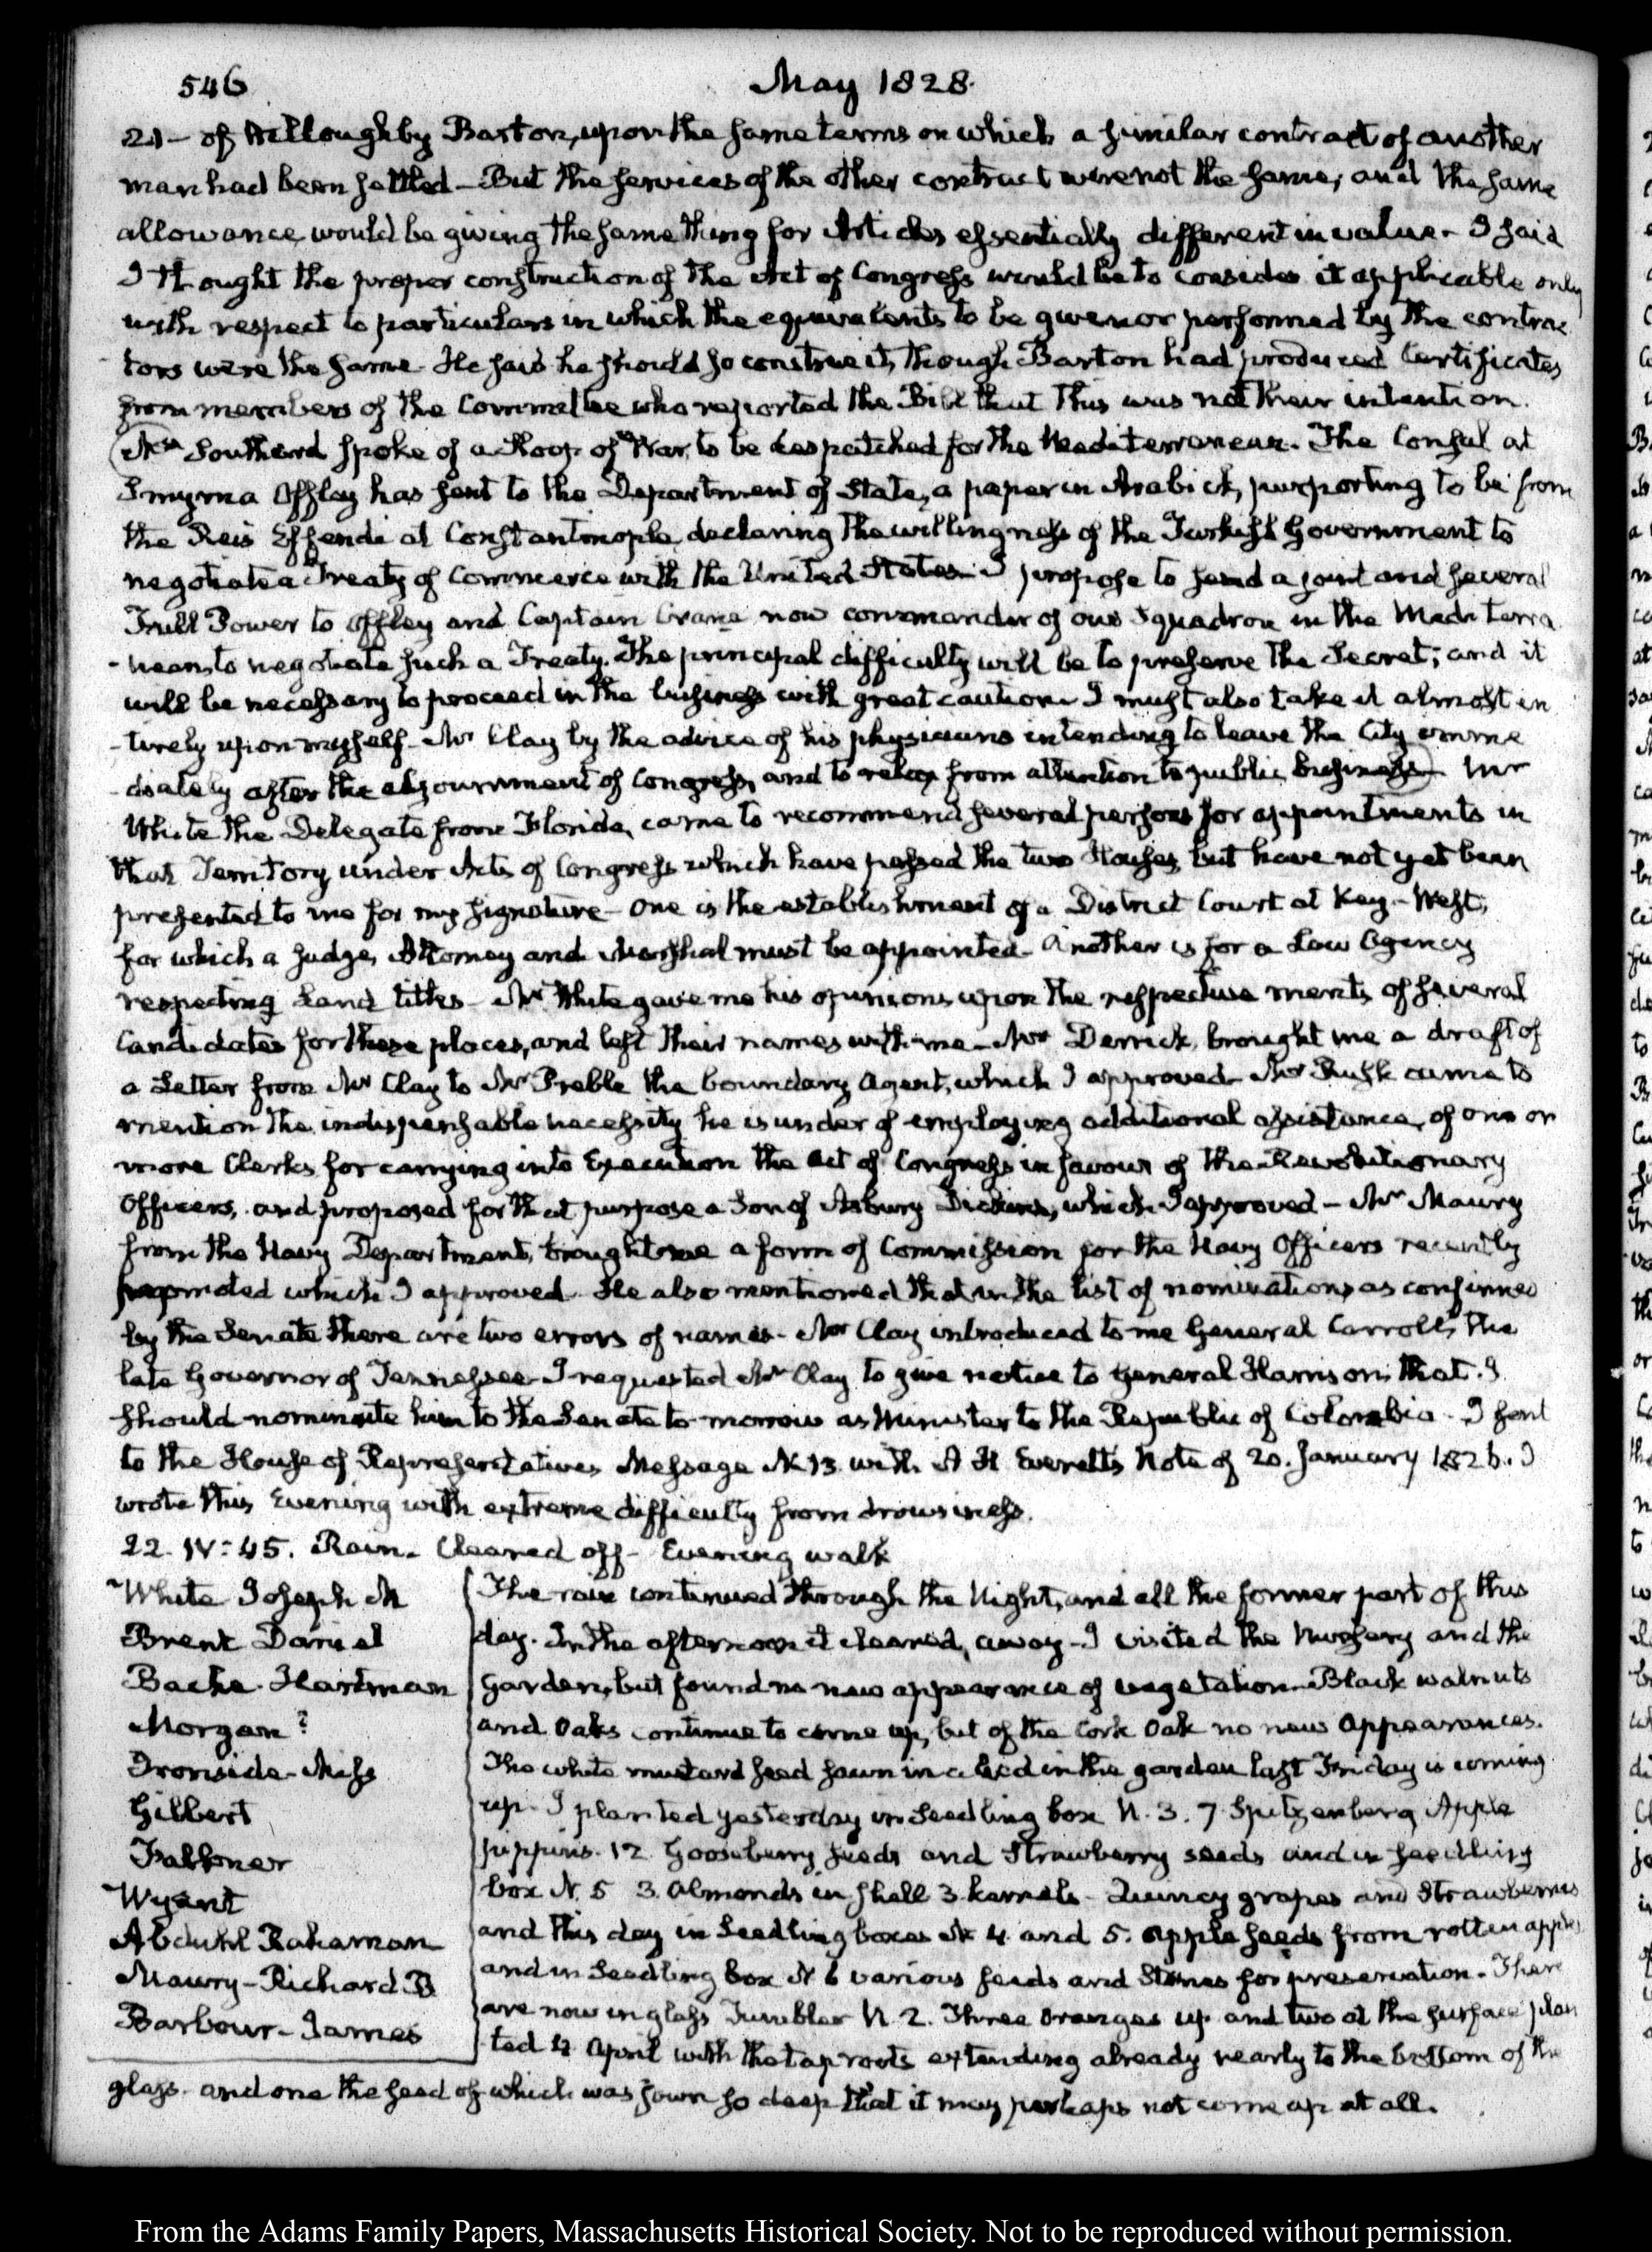 546
May 1828.
21 - of Willoughby Barton, upon the same terms on which a similar contract of another
man had been settled - But the services of the other contract were not the same, and the same
allowance, would be giving the same thing for Articles essentially different in value - I said
I thought the proper construction of the Act of Congress would be to consider it applicable only
with respect to particulars in which the equivalents to be given or performed by the contrac
tors were the same. He said he should so construe it, though Barton had produced Certificates
from members of the Committee who reported the Bill that this was not their intention.
Mr. Southard spoke of a Sloop of War, to be despatched for the Mediterranean. The Consul at
Smyrna Offley has sent to the Department of State, a paper in Arabick, purporting to be from
the Reis Effendi at Constantinople, declaring the willingness of the Turkish Government to
negotiate a Treaty of Commerce with the United States - I propose to send a joint and several
Full Power to Offley and Captain Crane now commander of our Squadron in the Mediterra
-nean, to negotiate such a Treaty. The principal difficulty will be to preserve the Secret; and it
will be necessary to proceed in the business with great caution. I must also take it almost en
-tirely upon myself - Mr Clay by the advice of his physicians intending to leave the City imme
-diately after the adjournment of Congress, and to relax from attention to public business - Mr
White the Delegate from Florida, came to recommend several persons for appointments in
that Territory under Acts of Congress which have passed the two Houses, but have not yet been
presented to me for my signature - One is the establishment of a District Court at Key-West,
for which a Judge, Attorney and Marshal must be appointed - Another is for a Law Agency
respecting Land titles - Mr White gave me his opinions upon the respective merits of several
Candidates for these places, and left their names with me - Mr Derrick, brought me a draft of
a Letter from Mr Clay to Mr Preble the boundary Agent, which I approved - Mr Rush came to
mention the indispensable necessity he is under of employing additional assistance, of one or
more Clerks for carrying into Execution the Act of Congress in favour of the Revolutionary
Officers, and proposed for that purpose a Son of Asbury Dickins, which I approved - Mr Maury
from the Navy Department, brought me a form of Commission for the Navy Officers recently
promoted which I approved. He also mentioned that in the list of nominations as confirmed
by the Senate there are two errors of names - Mr Clay introduced to me General Carroll, the
late Governor of Tennessee - I requested Mr Clay to give notice to General Harrison, that I
should nominate him to the Senate to-morrow as Minister to the Republic of Colombia - I sent
to the House of Representatives Message N 13. with A H Everett's Note of 20. January 1826. I
wrote this Evening with extreme difficulty from drowsiness.
22. IV: 45. Rain. Cleared off - Evening walk
White Joseph M
Brent Daniel
Bache. Hartman
Morgan?
Ironside - Miss
Gilbert
Falkner
Wyant
Abduhl Rahaman
Maury - Richard B
Barbour - James
The rain continued through the Night, and all the former part of this
day. In the afternoon it cleared, away - I visited the Nursery and the
Garden, but found no new appearance of vegetation. Black walnuts
and Oaks continue to come up, but of the Cork Oak no new appearances.
The white mustard seed sown in a bed in the garden last Friday is coming
up. I planted yesterday in Seedling box N. 3. 7 Spitzenberg Apple
pippins. 12 Gooseberry seeds and Strawberry seeds and in seedling
box N. 5 3 Almonds in shell 3 kernels - Quincy grapes and Strawberries
and this day in Seedling boxes N 4 and 5. Apple seeds from rotten apples
and in Seedling box N 6 various seeds and Stones for preservation. There
are now in glass Tumbler N. 2. Three Oranges up and two at the surface plan
ted 4 April with the tap roots extending already nearly to the bottom of the
glass. and one the seed of which was sown so deep that it may perhaps not come up at all.
From the Adams Family Papers, Massachusetts Historical Society. Not to be reproduced without permission.